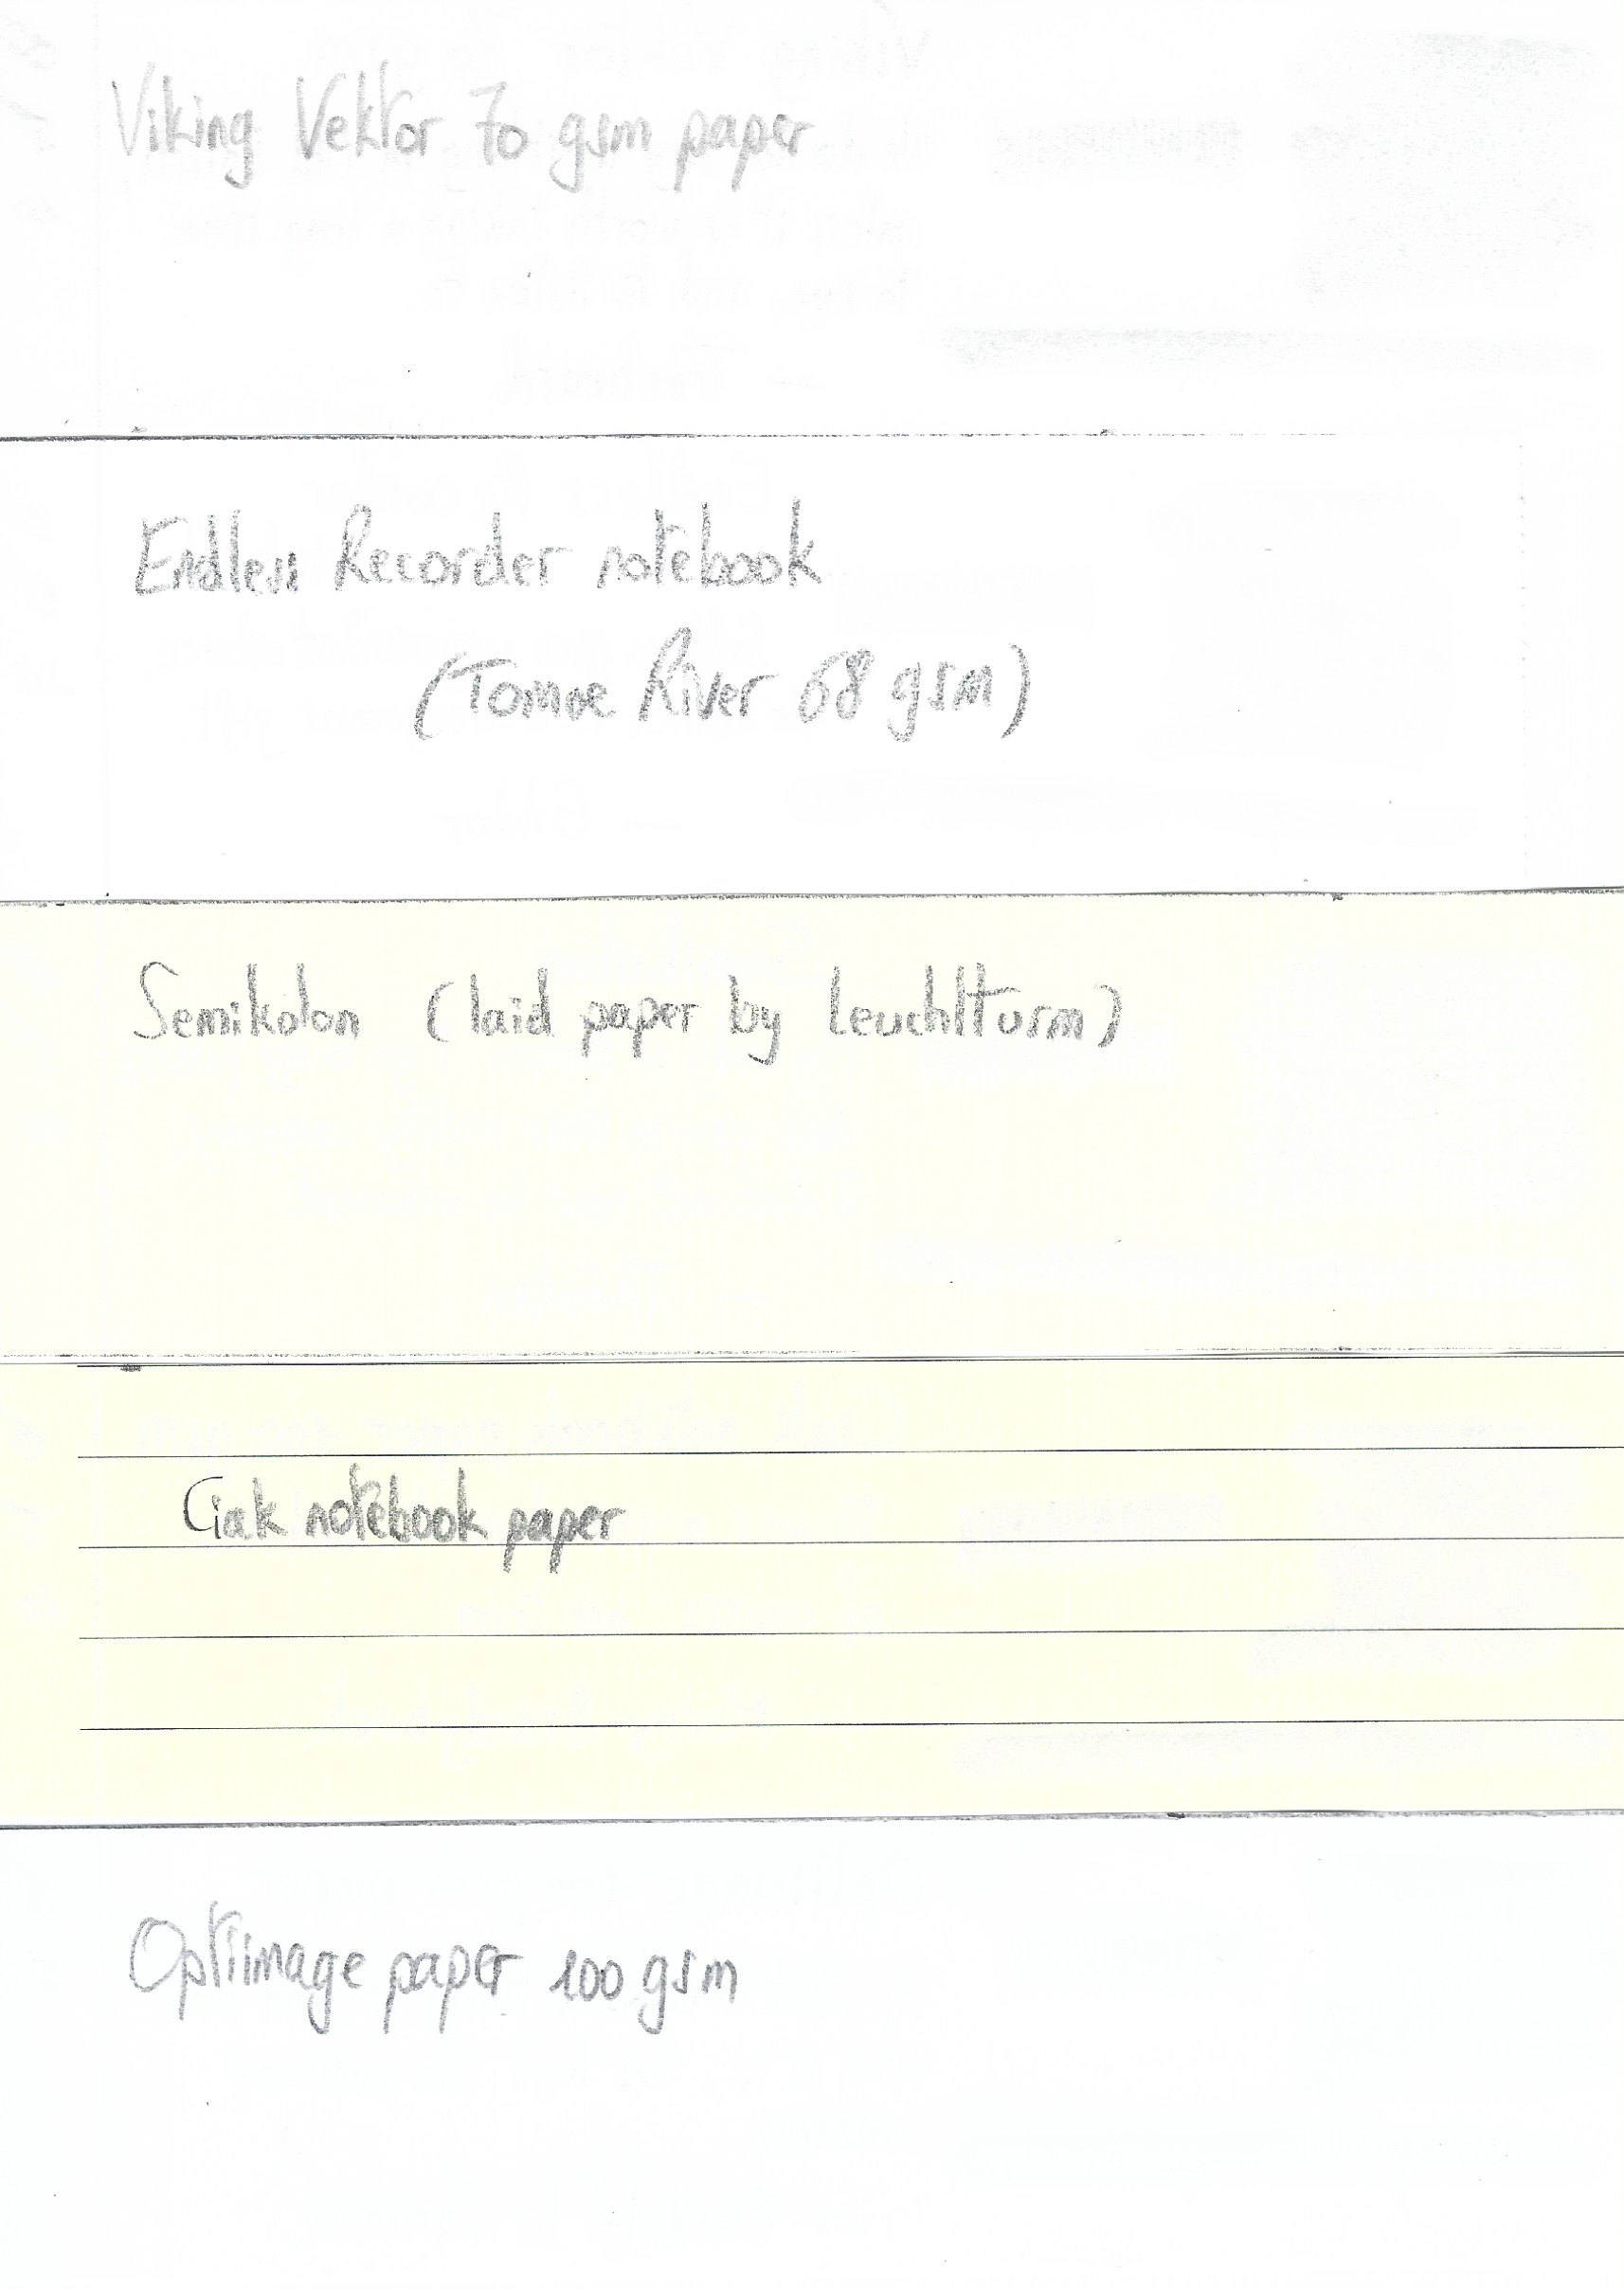 Viking Vektor 70 gsm paper
Endless Recorder notebook
(Tomoe River 68 gsm)
Semikolon (laid paper by Leuchtturm)
Ciak notebook paper
Optiimage paper 100 gsm